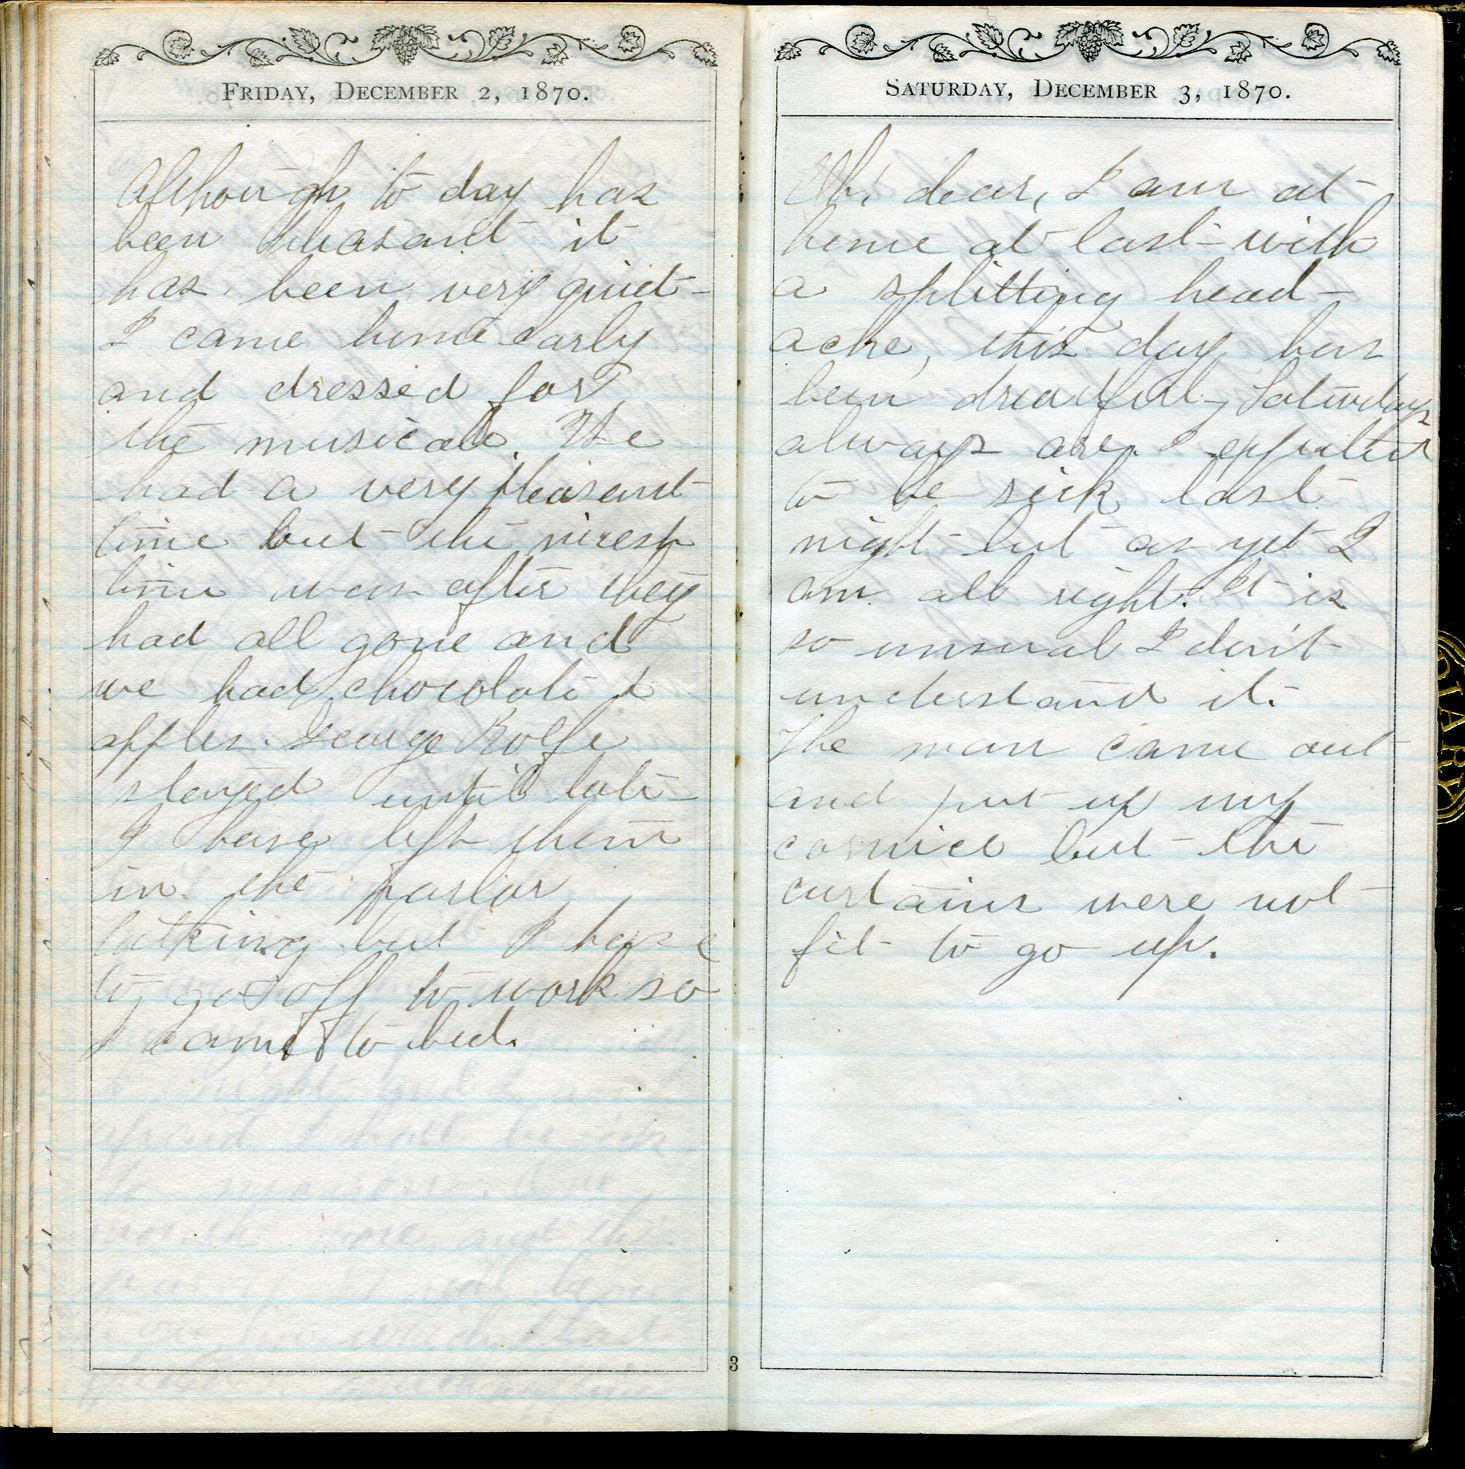 FRIDAY, DECEMBER 2, 1870.
Although to day has
been pleasant it
has been very quiet
I came home early
and dressed for
the musicale. We
had a very pleasant
time but the nicest
time was after they
had all gone and
we had chocolate &
apples. George Rolfe
stayed until late
I have left them
in the parlor
talking but I have
to go off to work so
I came to bed.
3
SATURDAY, DECEMBER 3, 1870.
Oh, dear, I am at
home at last with
a splitting head-
ache, this day has
been dreadful, Saturdays
always are. I expected
to be sick last
night but as yet I
am all right. It is
so unusual I don't
understand it.
The man came out
and put up my
cornice but the
curtains were not
fit to go up.
DIARY